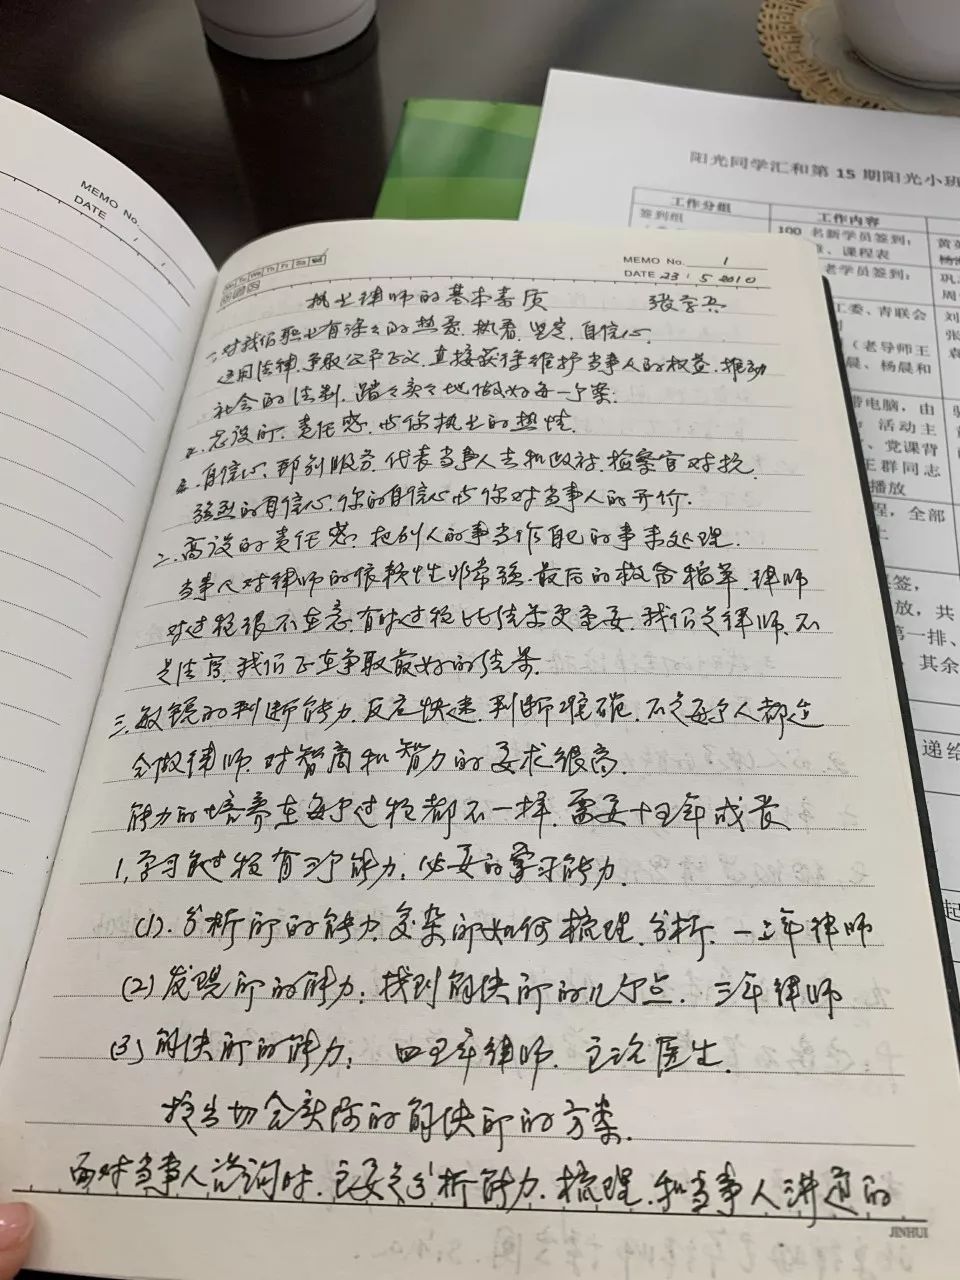 MEMO No.
DATE
阳光同学汇和第 15 期阳光小班
工作分组 工作内容
签到组 100 名新学员签到;
课程表
老学员签到;
工委、青联会
(老导师王
晨、杨晨和
带电脑,由
活动主
、党课背
王群同志
播放
程,全部
签,
放,共
第一排、
,其余
递给
MEMO No. 1
DATE 23 / 5 2010
执业律师的基本素质
一、对我们职业有深深的热爱、执着、坚定、自信心。
运用法律,争取公平正义,直接获得维护当事人的权益,推动
社会的法制,踏踏实实地做好每一个案。
责任感,与你执业的热情。
自信心,代表当事人去和政府、检察官对抗
强烈的自信心,你的自信心与你对当事人的
二、高设的责任感,把别人的事当作自己的事来处理。
当事人对律师的依赖性非常强,最后的救命稻草,律师
对过程很不在意,有时过程比结果更重要,我们是律师,不
是法官,我们正在争取最好的结果。
三、敏锐的判断能力,反应快速,判断准确,不是每个人都适
合做律师,对智商和智力的要求很高。
能力的培养在每个过程都不一样,需要十五年成长
1、学习过程有三个能力,必要的学习能力。
(1)、分析问的能力,复杂问如何梳理、分析,一二年律师
(2)发现问的能力,找到解决问的几个点,三年律师
(3)解决问的能力, 四五年律师,主治医生。
找出切合实际的解决问的方案。
面对当事人咨询时,主要是分析能力,梳理,和当事人讲道的
JINHUI